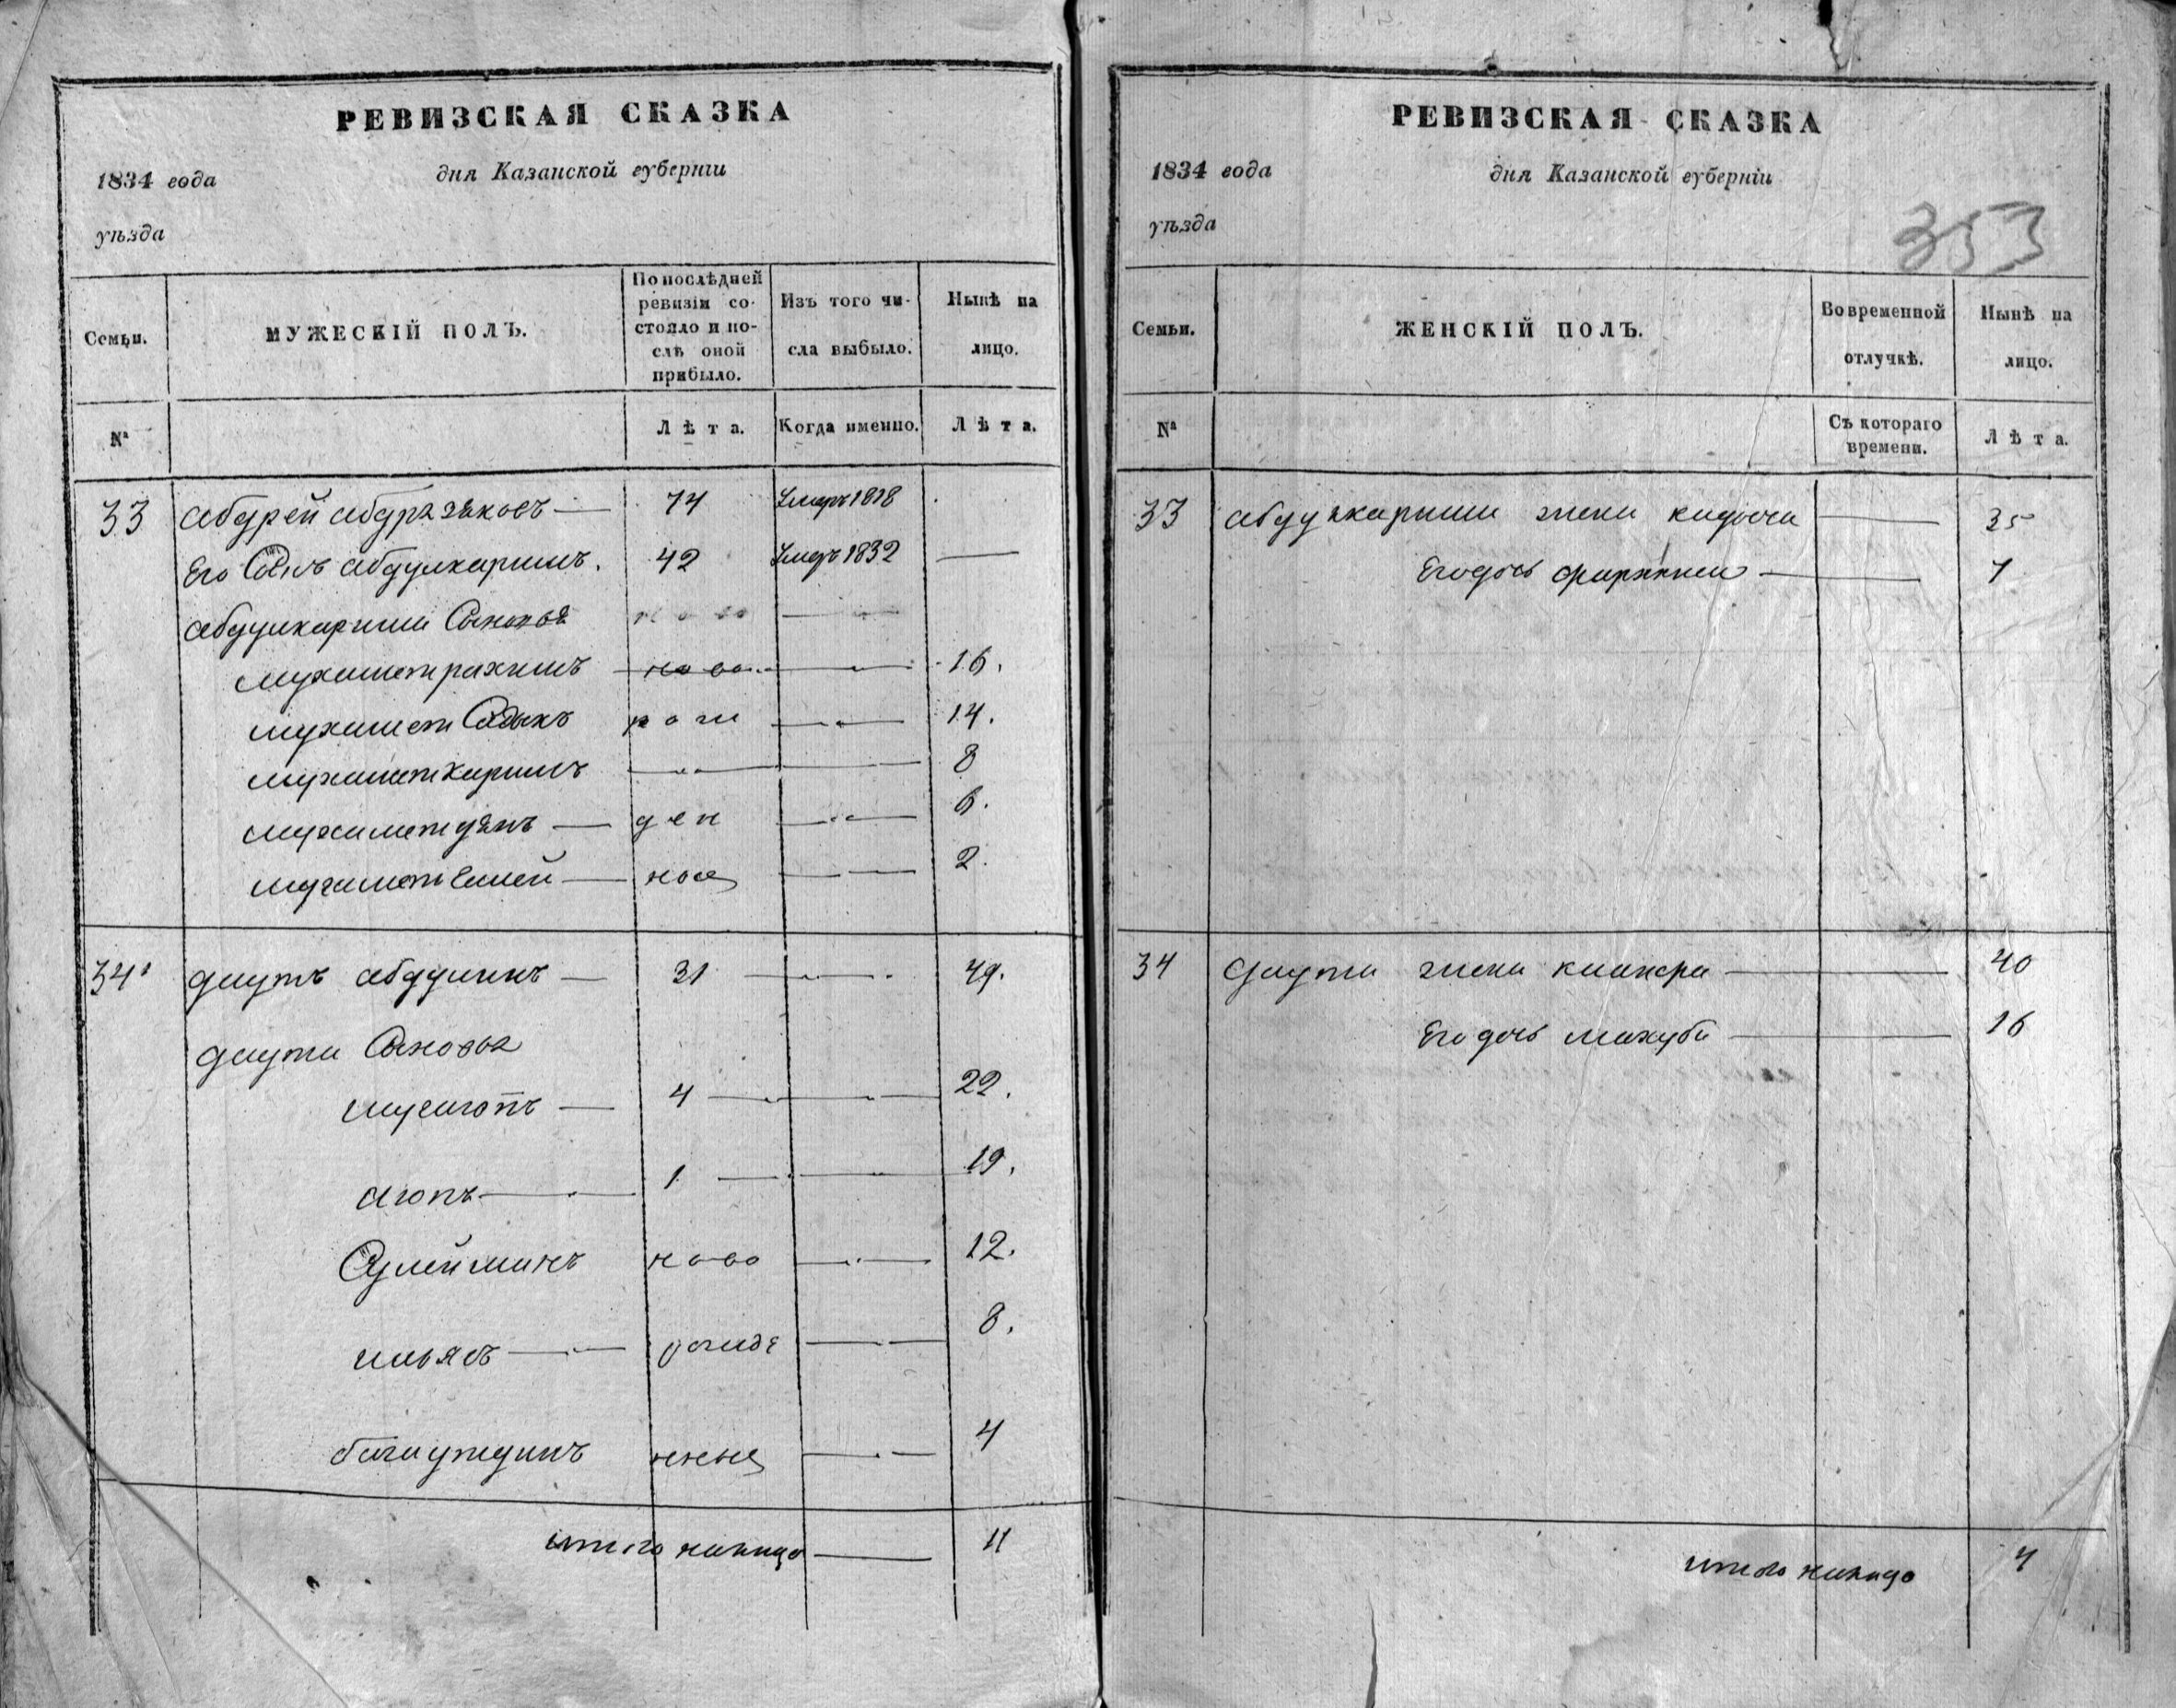 РЕВИЗСКАЯ СКАЗКА
1834 года дня Казанской губернiи
уѣзда
Семьи. МУЖЕСКІЙ ПОЛЪ. По послѣдней ревизіи состояло и послѣ оной прибыло. Изъ того числа выбыло. Нынѣ на лицо.
№ Лѣта. Когда именно. Лѣта.
33 абдрей абдразяковъ — 74 Умеръ 1818
Его Сынъ абдулкаримъ. 42 Умеръ 1832 —
абдулкарима Сыновья
мухаметрахимъ ново — 16.
мухамет Садыкъ рож — 14.
мухаметкаримъ — 8
мухаметдянъ — ден — 6.
мухамет — ные — 2.
34 даутъ абдулинъ — 31 — 49.
даута Сыновья
— 4 — 22.
аюпъ — 1 — 19.
Сулейманъ ново — 12.
ильясъ — рожде — 8.
багаутдинъ нные — 4
итого налицо — 11
РЕВИЗСКАЯ СКАЗКА
1834 года дня Казанской губернiи
уѣзда
353
Семьи. ЖЕНСКІЙ ПОЛЪ. Во временной отлучкѣ. Нынѣ на лицо.
№ Съ котораго времени. Лѣта.
33 абдулкарима жена — 35
Его дочь — 7
34 даута жена — 40
Его дочь махуба — 16
итого налицо 4